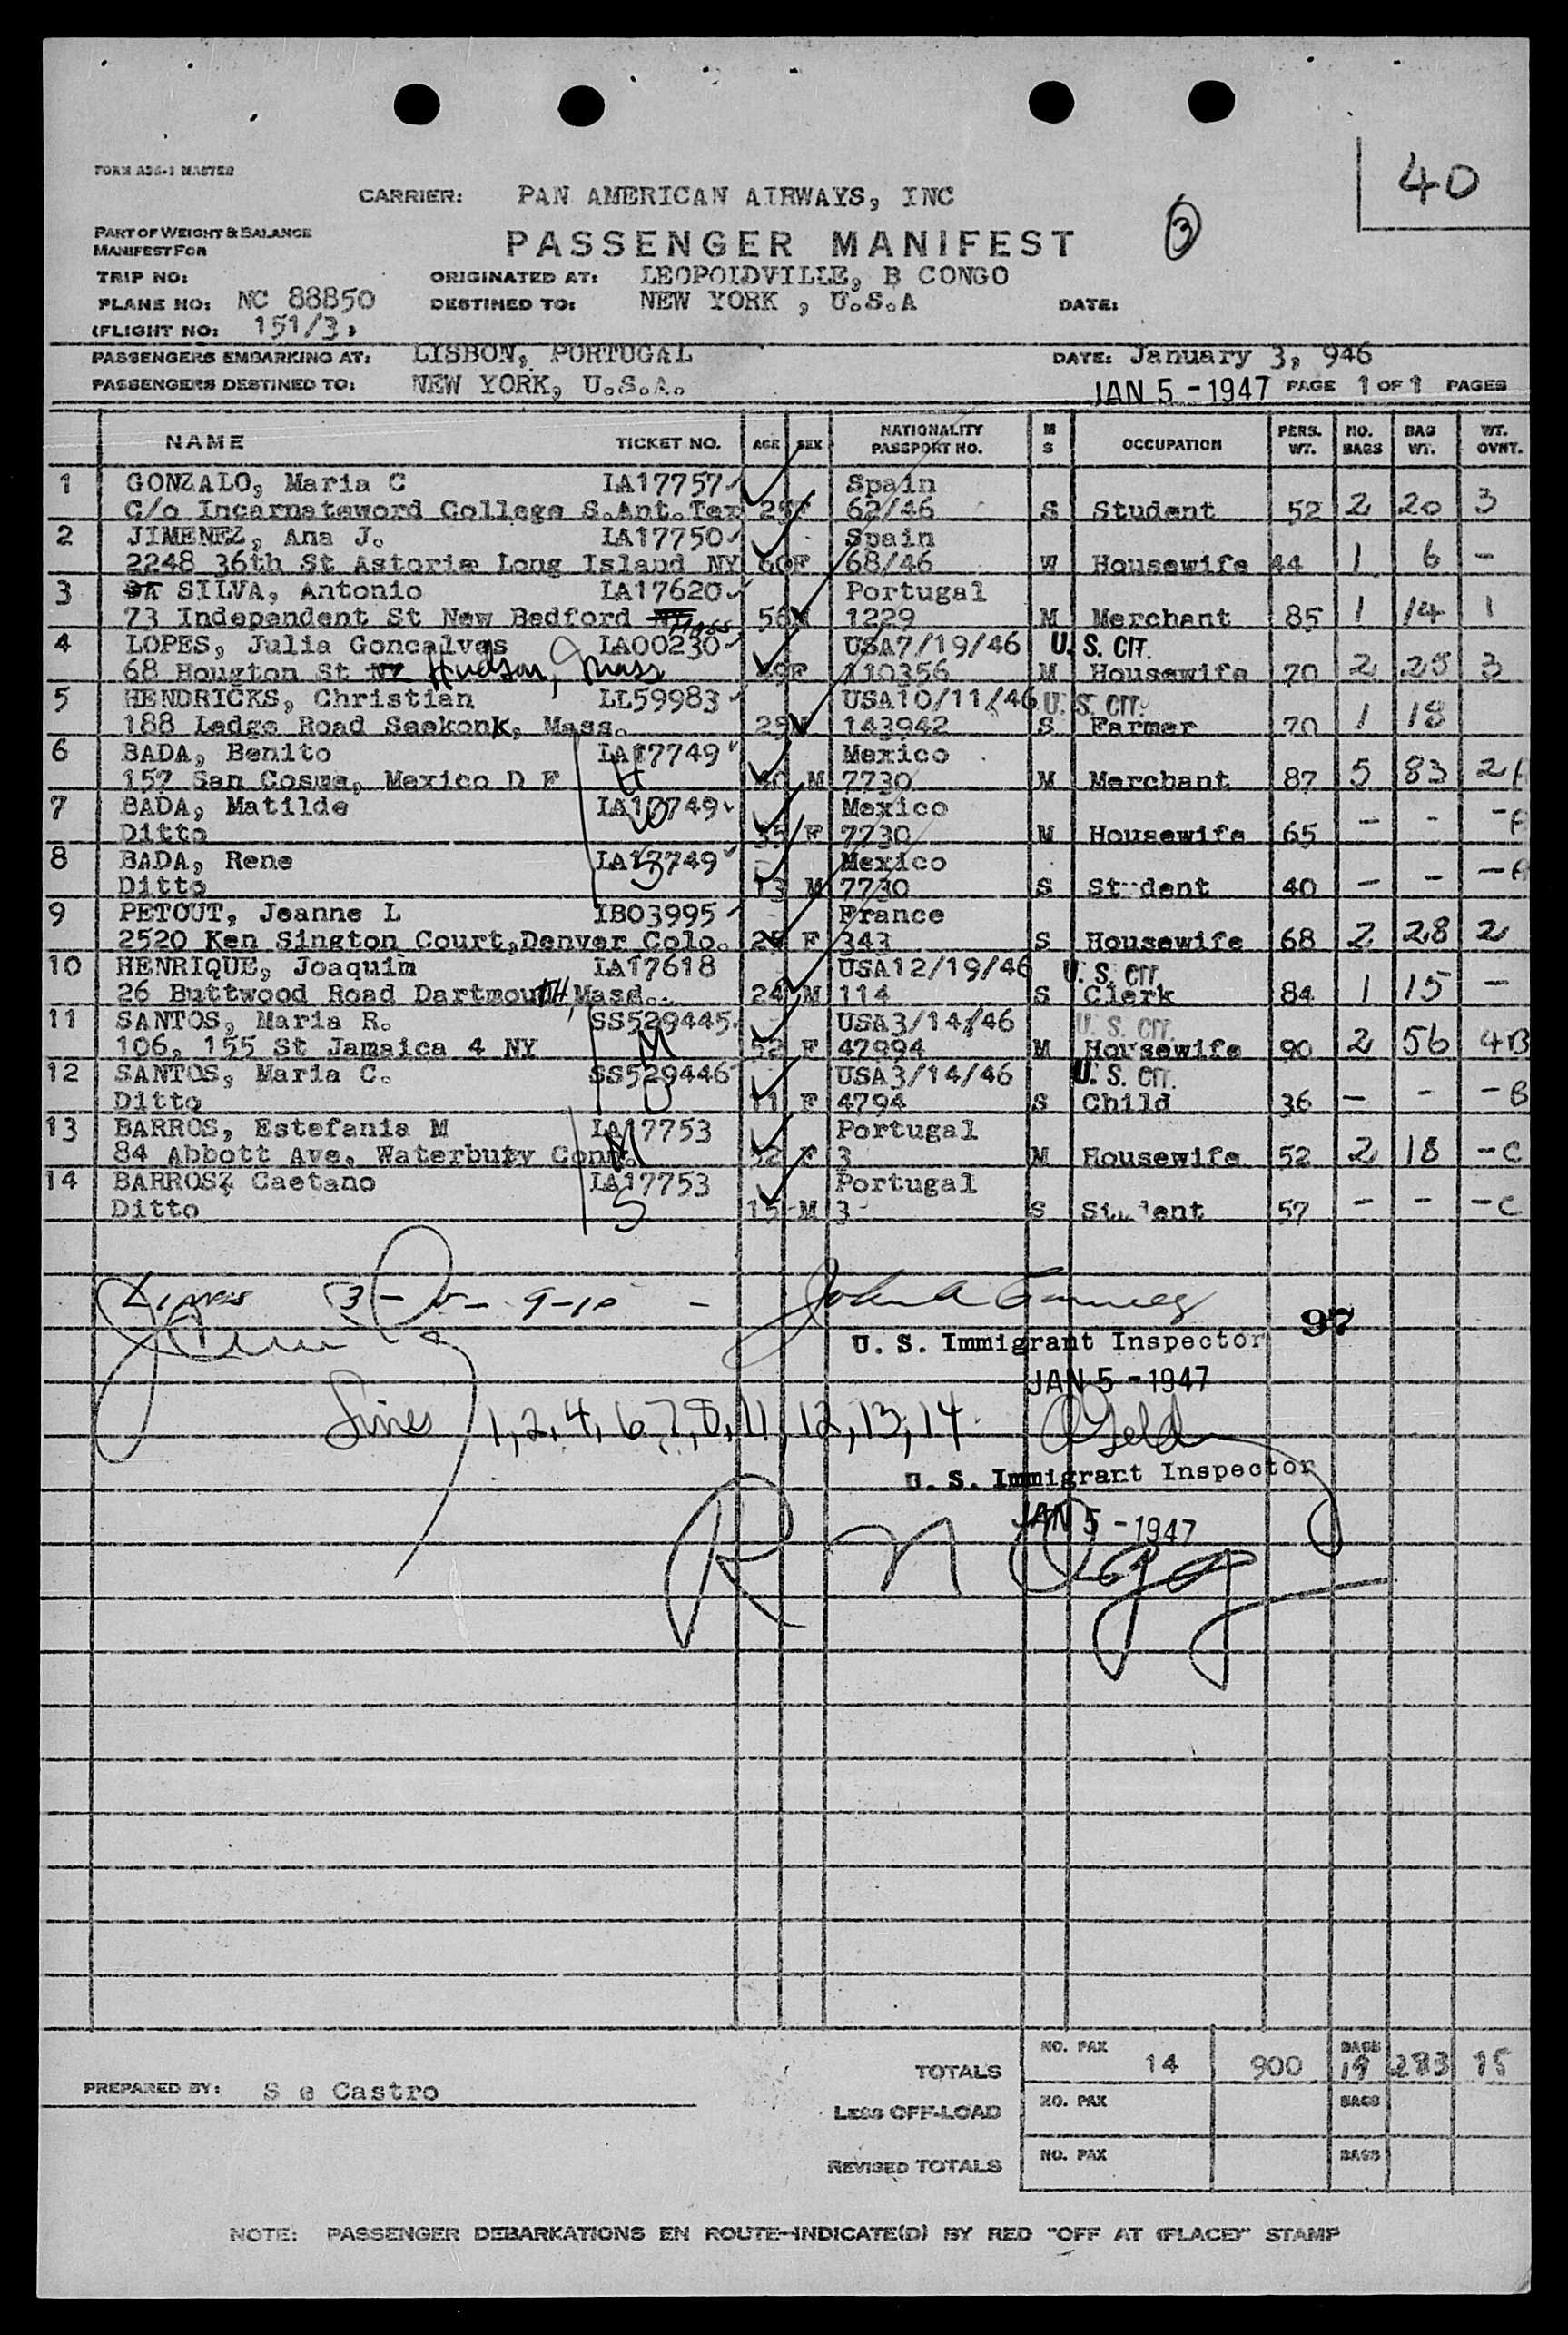 40
FORM ASG-1 MASTER
CARRIER: PAN AMERICAN AIRWAYS, INC
3
PART OF WEIGHT & BALANCE
MANIFEST FOR
PASSENGER MANIFEST
TRIP NO: ORIGINATED AT: LEOPOLDVILLE, B CONGO
PLANE NO: NC 88850 DESTINED TO: NEW YORK , U.S.A DATE:
(FLIGHT NO: 151/3,
PASSENGERS EMBARKING AT: LISBON, PORTUGAL DATE: January 3, 946
PASSENGERS DESTINED TO: NEW YORK, U.S.A. JAN 5 - 1947 PAGE 1 OF 1 PAGES
NAME TICKET NO. AGE SEX NATIONALITY PASSPORT NO. M S OCCUPATION PERS. WT. NO. BAGS BAG WT. WT. OVNT.
1 GONZALO, Maria C IA17757 Spain
C/o Incarnateword College S.Ant.Tex 25 F 62/46 S Student 52 2 20 3
2 JIMENEZ, Ana J. IA17750 Spain
2248 36th St Astoria Long Island NY 60F 68/46 W Housewife 44 1 6 -
3 DA SILVA, Antonio IA17620 Portugal
73 Independent St New Bedford Mass 56M 1229 M Merchant 85 1 14 1
4 LOPES, Julia Goncalves IA00230 USA7/19/46 U. S. CIT.
68 Hougton St NY Hudson, Mass 49F 110356 M Housewife 70 2 25 3
5 HENDRICKS, Christian LL59983 USA10/11/46 U. S. CIT.
188 Ledge Road Seekonk, Mass. 25M 143942 S Farmer 70 1 18
6 BADA, Benito IA17749 H Mexico
157 San Cosme, Mexico D F 40 M 7730 M Merchant 87 5 83 2A
7 BADA, Matilde IA17749 W Mexico
Ditto 35 F 7730 M Housewife 65 - - -A
8 BADA, Rene IA17749 S Mexico
Ditto 13 M 7730 S Student 40 - - -A
9 PETOUT, Jeanne L IB03995 France
2520 Ken Sington Court,Denver Colo. 25 F 343 S Housewife 68 2 28 2
10 HENRIQUE, Joaquim IA17618 USA12/19/46 U. S. CIT.
26 Buttwood Road DartmouTH, Mass. 24 M 114 S Clerk 84 1 15 -
11 SANTOS, Maria R. SS529445 M USA3/14/46 U. S. CIT.
106, 155 St Jamaica 4 NY 52 F 47994 M Housewife 90 2 56 4B
12 SANTOS, Maria C. SS529446 D USA3/14/46 U. S. CIT.
Ditto 11 F 4794 S Child 36 - - -B
13 BARROS, Estefania M IA17753 M Portugal
84 Abbott Ave, Waterbury Conn. 52 F 3 M Housewife 52 2 18 -C
14 BARROS, Caetano IA17753 S Portugal
Ditto 15 M 3 S Student 57 - - -C
Lines 3-5-9-10 -
U. S. Immigrant Inspector 97
JAN 5 - 1947
Lines 1,2,4,6,7,8,11,12,13,14
U. S. Immigrant Inspector
JAN 5 - 1947
R N Ogg
TOTALS NO. PAX 14 900 BAGS 19 283 15
PREPARED BY: S e Castro
LESS OFF-LOAD NO. PAX BAGS
REVISED TOTALS NO. PAX BAGS
NOTE: PASSENGER DEBARKATIONS EN ROUTE—INDICATE(D) BY RED "OFF AT (PLACE)" STAMP